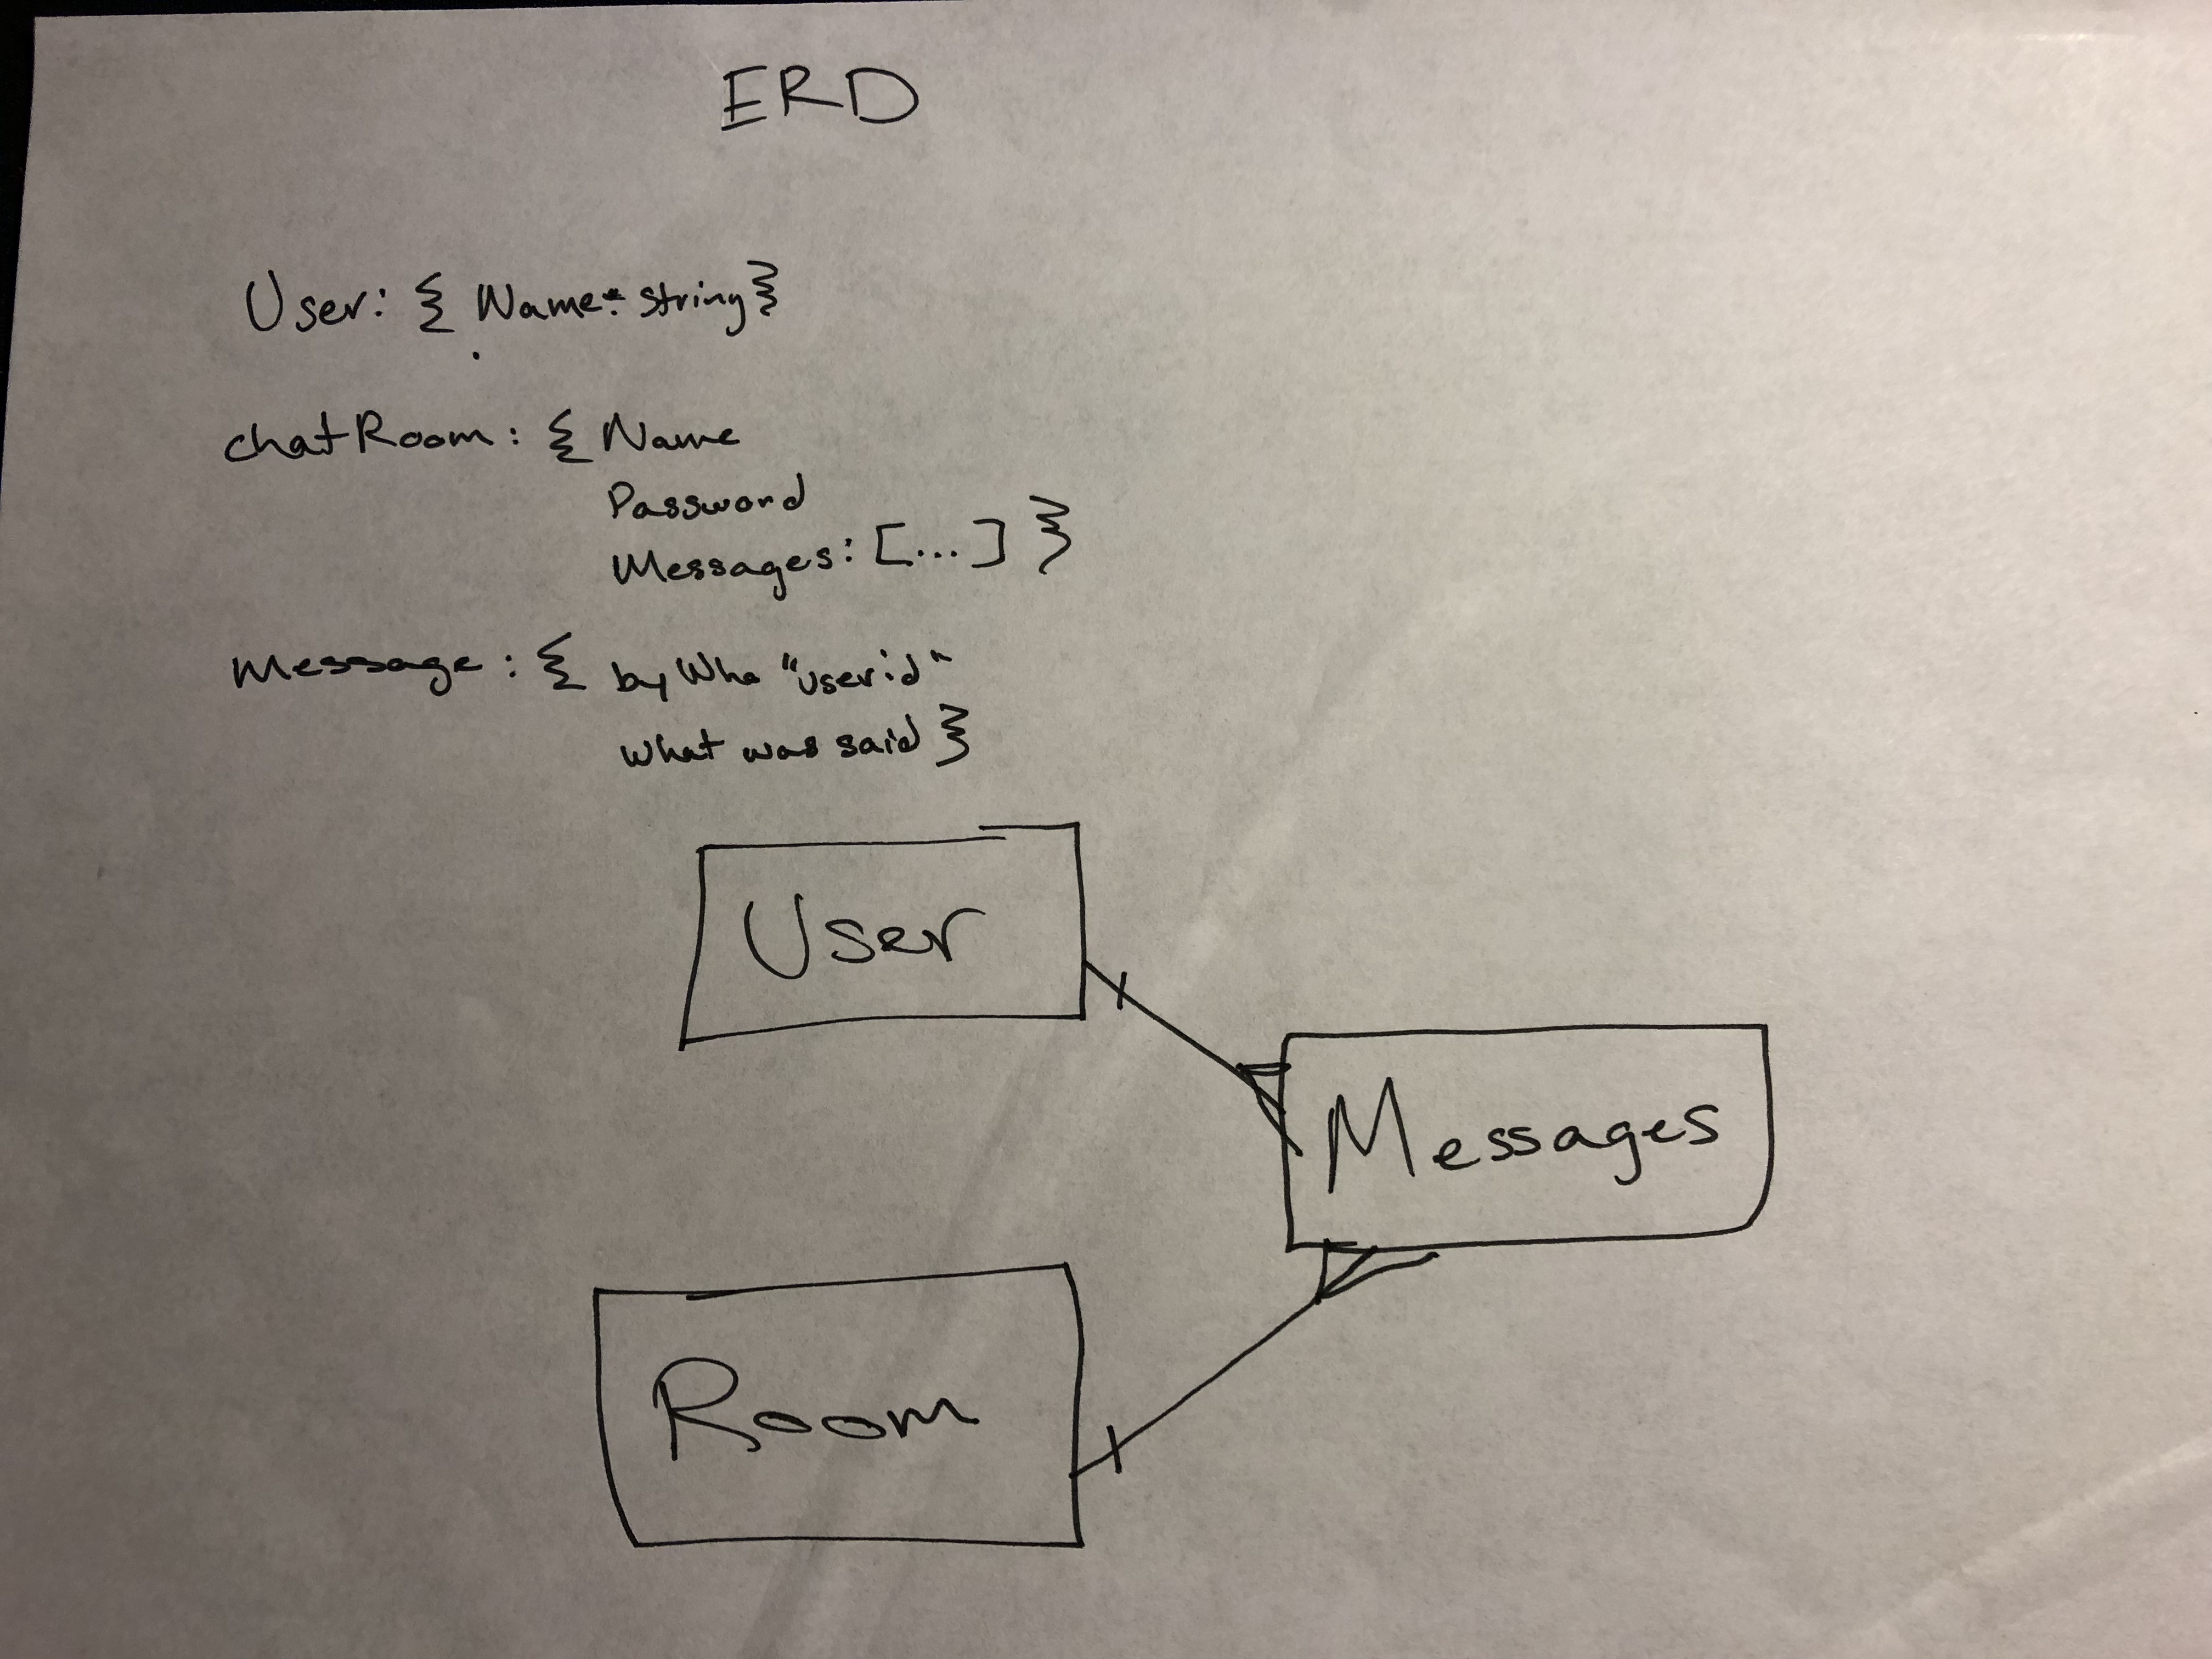 ERD
User: { Name: string}
chatRoom: { Name
Password
Messages: [...] }
Message: { by Who "userid"
what was said }
User
Messages
Room